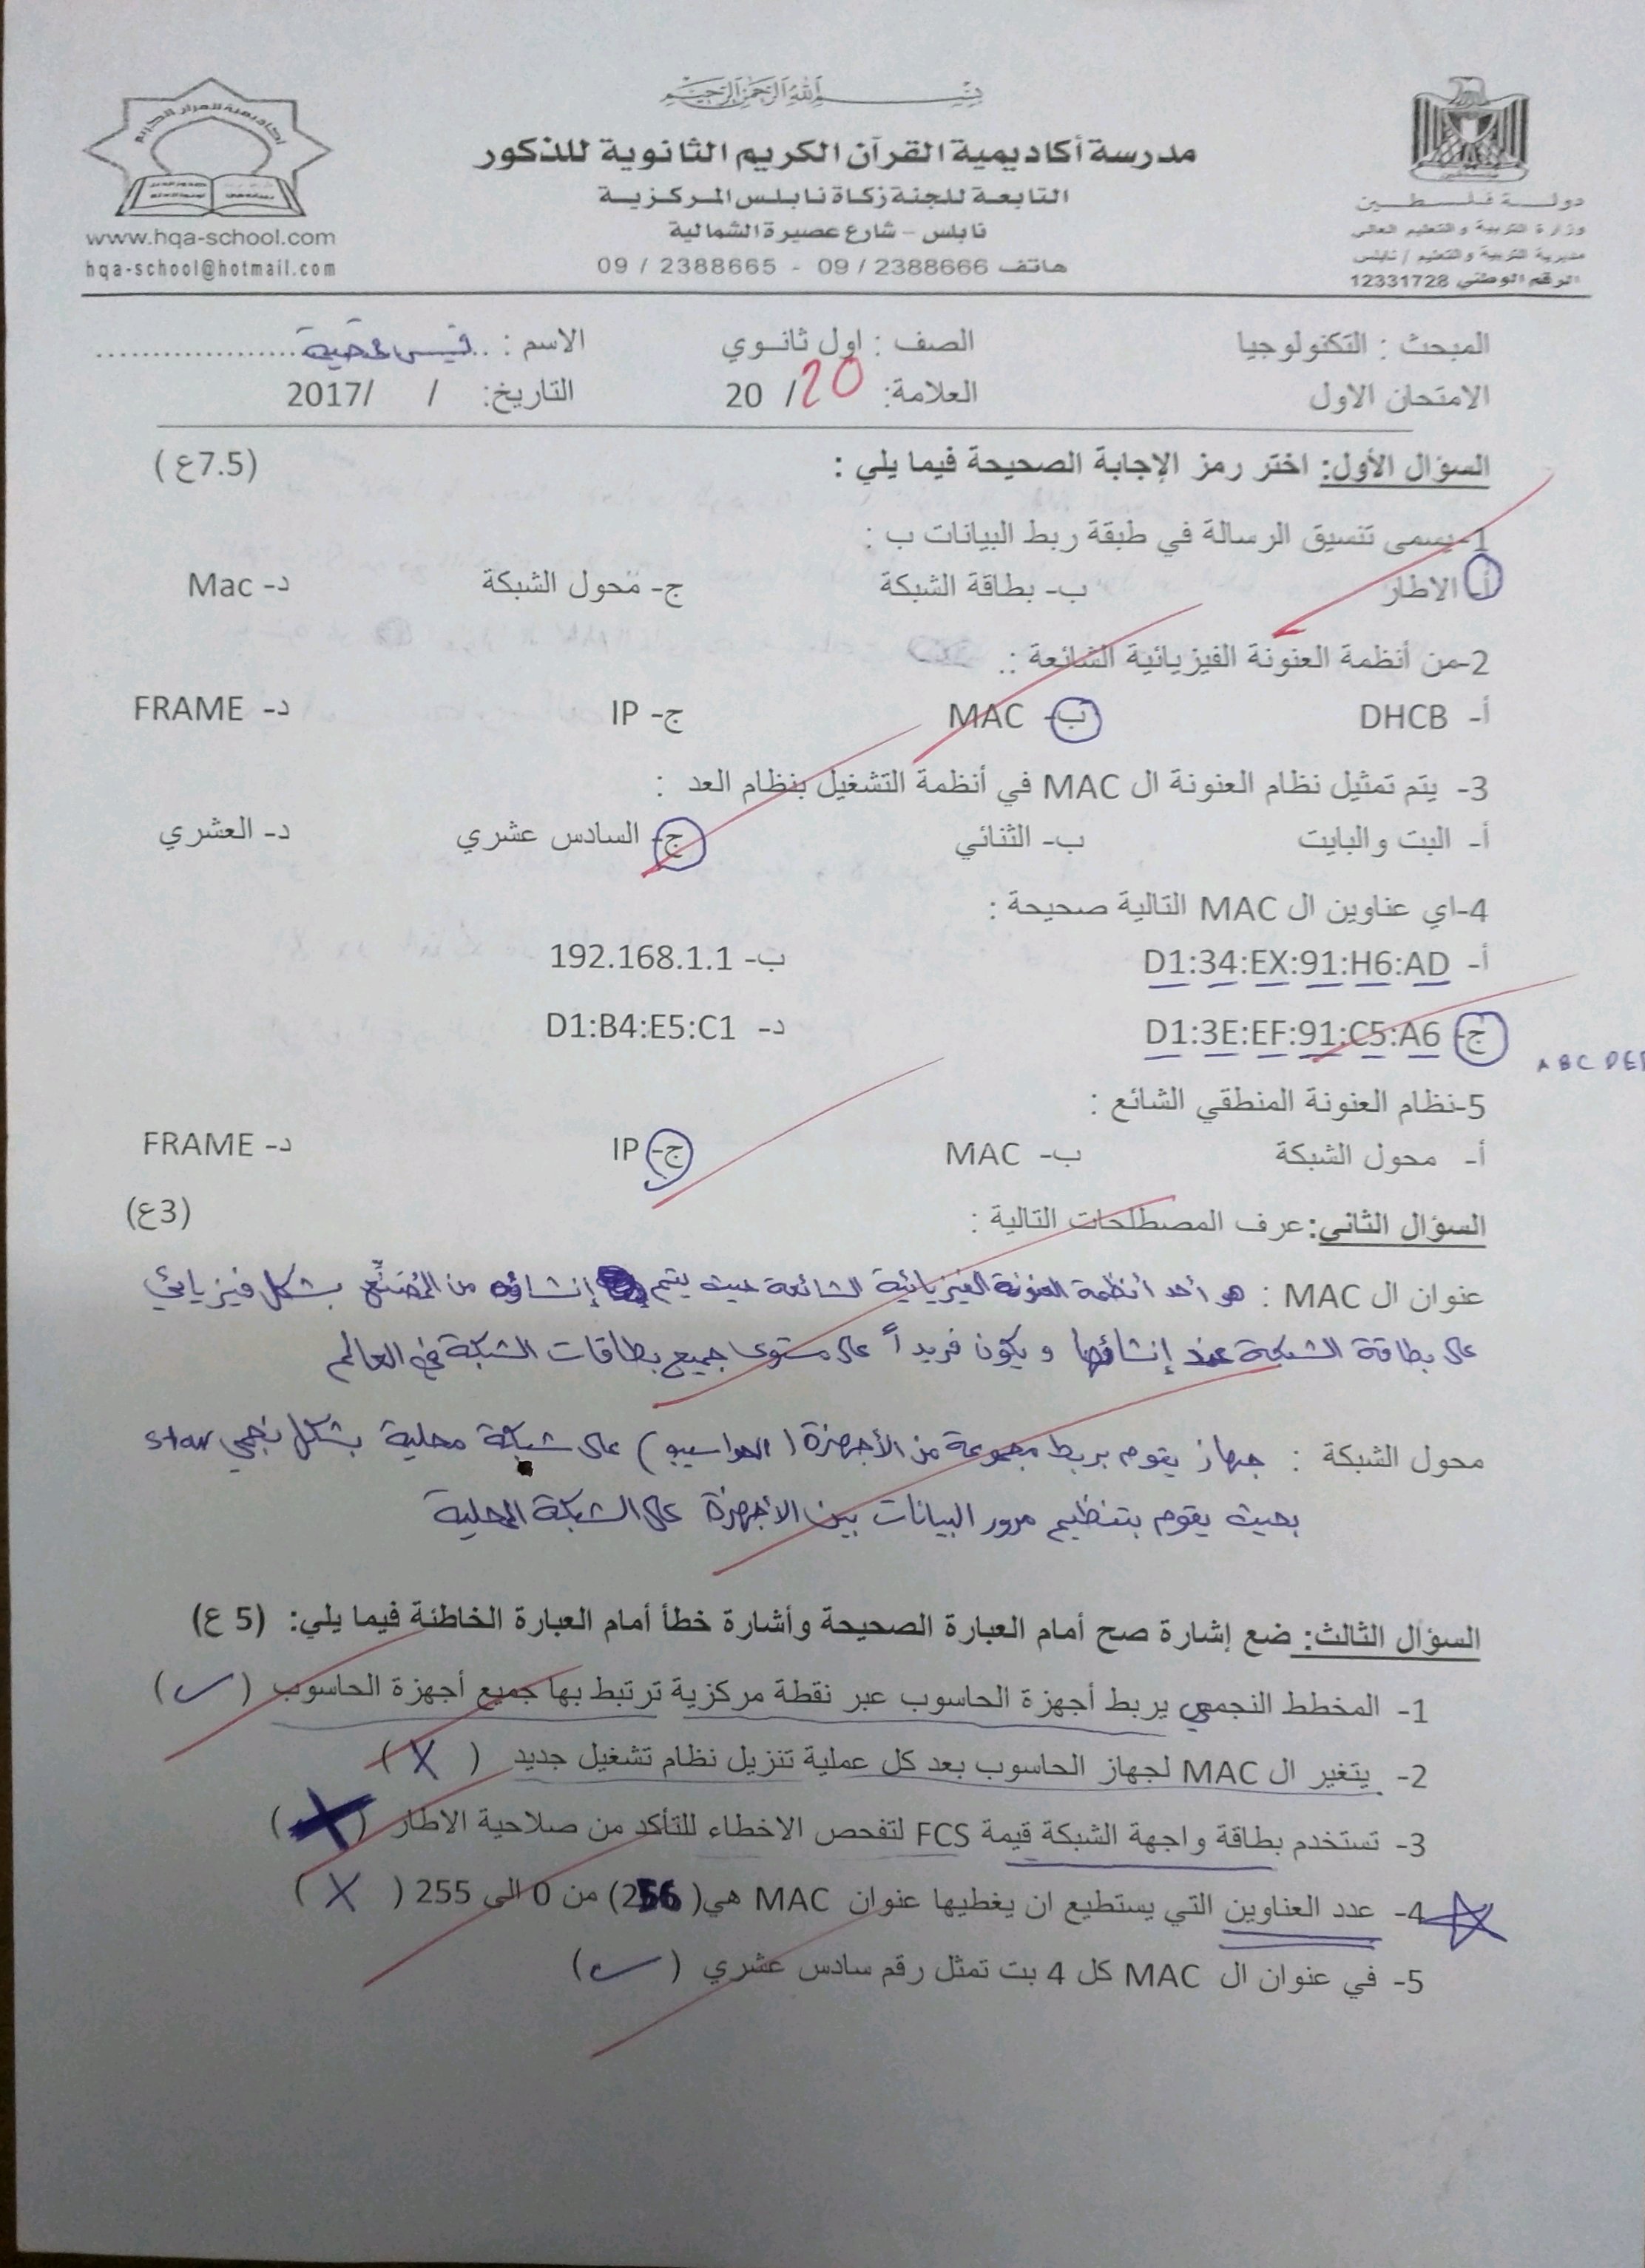 بسم الله الرحمن الرحيم
مدرسة أكاديمية القرآن الكريم الثانوية للذكور
التابعة للجنة زكاة نابلس المركزية
نابلس – شارع عصيرة الشمالية
هاتف 2388666 / 09 - 2388665 / 09
دولة فلسطين
وزارة التربية والتعليم العالي
مديرية التربية والتعليم / نابلس
الرقم الوطني 12331728
أكاديمية القرآن الكريم
www.hqa-school.com
hqa-school@hotmail.com
المبحث : التكنولوجيا الصف : اول ثانوي الاسم : قيس
الامتحان الاول العلامة: 20 / 20 التاريخ: / /2017
السؤال الأول: اختر رمز الإجابة الصحيحة فيما يلي : (7.5ع)
1-يسمى تنسيق الرسالة في طبقة ربط البيانات ب :
أ- الاطار ب- بطاقة الشبكة ج- محول الشبكة د- Mac
2-من أنظمة العنونة الفيزيائية الشائعة :.
أ- DHCB ب- MAC ج- IP د- FRAME
3- يتم تمثيل نظام العنونة ال MAC في أنظمة التشغيل بنظام العد :
أ- البت والبايت ب- الثنائي ج- السادس عشري د- العشري
4-اي عناوين ال MAC التالية صحيحة :
أ- D1:34:EX:91:H6:AD ب- 192.168.1.1
ج- D1:3E:EF:91:C5:A6 د- D1:B4:E5:C1
A B C D E F
5-نظام العنونة المنطقي الشائع :
أ- محول الشبكة ب- MAC ج- IP د- FRAME
السؤال الثاني: عرف المصطلحات التالية : (3ع)
عنوان ال MAC : هو أحد أنظمة العنونة الفيزيائية الشائعة حيث يتم إنشاؤه من المُصَنِّع بشكل فيزيائي
على بطاقة الشبكة عند إنشاؤها ويكون فريداً على مستوى جميع بطاقات الشبكة في العالم
محول الشبكة : جهاز يقوم بربط مجموعة من الأجهزة (الحواسيب) على شبكة محلية بشكل نجمي star
بحيث يقوم بتنظيم مرور البيانات بين الأجهزة على الشبكة المحلية
السؤال الثالث: ضع إشارة صح أمام العبارة الصحيحة وأشارة خطأ أمام العبارة الخاطئة فيما يلي: (5 ع)
1- المخطط النجمي يربط أجهزة الحاسوب عبر نقطة مركزية ترتبط بها جميع أجهزة الحاسوب ( ✓ )
2- يتغير ال MAC لجهاز الحاسوب بعد كل عملية تنزيل نظام تشغيل جديد ( X )
3- تستخدم بطاقة واجهة الشبكة قيمة FCS لتفحص الاخطاء للتأكد من صلاحية الاطار ( X )
4- عدد العناوين التي يستطيع ان يغطيها عنوان MAC هي( 256) من 0 الى 255 ( X )
5- في عنوان ال MAC كل 4 بت تمثل رقم سادس عشري ( ✓ )